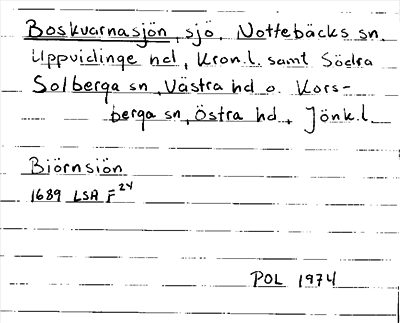 Boskvarnasjön, sjö, Nottebäcks sn.
Uppvidinge hd, Kron.l. samt Södra
Solberga sn, Västra hd o. Kors-
berga sn, Östra hd, Jönk.l.
Biörnsiön
1689 LSA F24
POL 1974